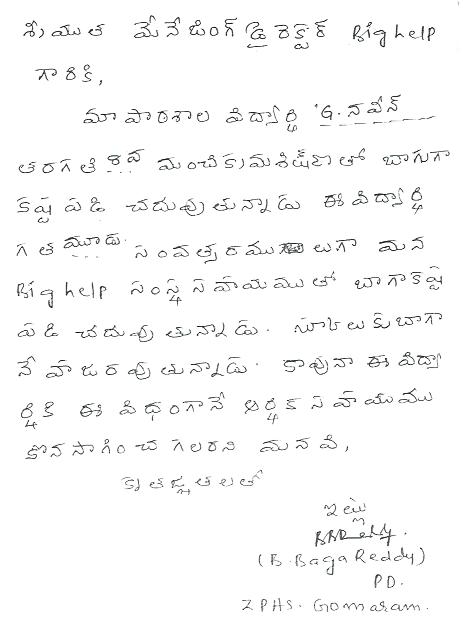 శ్రీయుత మేనేజింగ్ డైరెక్టర్ Big help
గారికి,
మా పాఠశాల విద్యార్థి 'G. నవీన్
తరగతి 8వ మంచి క్రమశిక్షణతో బాగుగా
కష్ట పడి చదువుతున్నాడు ఈ విద్యార్థి
గత మూడు సంవత్సరములుగా మన
Big help సంస్థ సహాయముతో బాగా కష్ట
పడి చదువుతున్నాడు. స్కూలుకు బాగా
నే హాజరవుతున్నాడు. కావునా ఈ విద్యా
ర్థికి ఈ విధంగానే ఆర్థిక సహాయము
కొనసాగించ గలరని మనవి,
కృతజ్ఞతలతో
ఇట్లు
(B. Baga Reddy)
PD.
ZPHS. Gomaram.